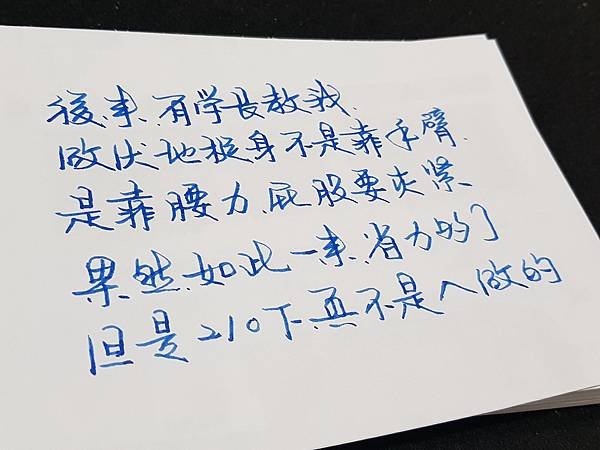 後来有学長教我
做伏地挺身不是靠手臂
是靠腰力屁股要夾緊
果然如此一来省力的了
但是210下真不是人做的